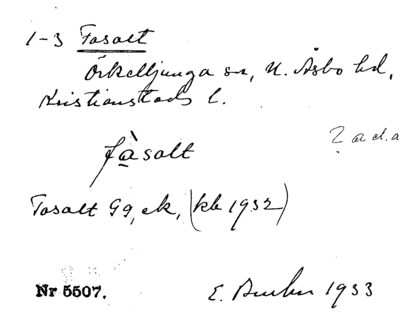 1-3 Fasalt
Örkelljunga sn, N. Åsbo hd,
Kristianstads l.
fàsalt
? a el. a
Fasalt Gg, ek, (kb 1932)
Nr 5507.
E. 1933